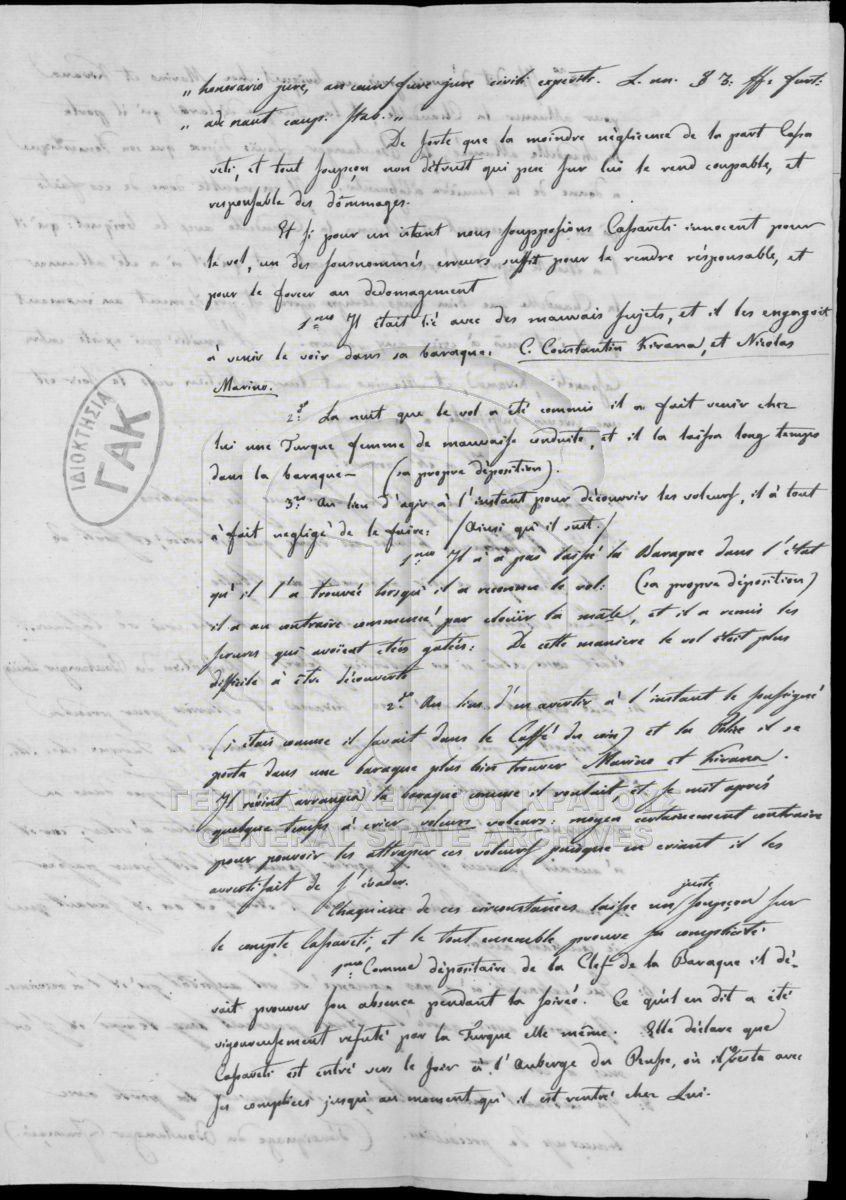 „ honorario jure, an
„ ade naut caup: stab. „
De sorte que la moindre négligence de la part Cassa
veti, et tout soupçon non détruit qui pese sur lui le rend coupable, et
responsable des dômmages.
Et si pour un istant nous souppposions Cassaveti innocent pour
le vol, un des sousnommés erreurs suffit pour le rendre résponsable, et
pour le forcer au dedomagement
1mo Il était lié avec des mauvais sujets, et il les engageoit
à venir le voir dans sa baraque: C. Constantin Kirana, et Nicolas
Marino.
2do La nuit que le vol a été commis il a fait venir chez
lui une Turque femme de mauvaise conduite, et il la laissa long temps
dans la baraque — (sa propre déposition).
3zo Au lieu d'agir à l'instant pour découvrir les voleurs, il à tout
à fait negligé de le faire: /Ainsi qu'il suit./
1mo Il à à pas laissé la Baraque dans l'état
qu'il l'a trouvée lorsqu'il a reconnu le vol: (sa propre déposition)
il a au contraire commencé par clouïr la mâle, et il a remis les
serures qui avoient etées gatées: De cette maniere le vol étoit plus
difficile à être découverte
2do Au lieu d'en avertir à l'instant le soussigné
(j'étais comme il savait dans le Caffé du coin) et la Police il se
porta dans une baraque plus loin trouver Marino et Kirana.
Il revint arrangea la baraque comme il voulait et se mit après
quelque temps à crier voleurs voleurs: moyen certainement contraire
pour pouvoir les attraper ces voleurs puisque en criant il les
avertissait de s'évader.
Chaquune de ces circonstances laisse un juste soupçon sur
le compte Cassaveti, et le tout ensemble prouve sa complicité
1mo Comme dépositaire de la Clef de la Baraque il dé-
vait prouver son absence pendant la soirée. Ce qu'il en dit a été
vigoureusement refuté par la Turque elle même. Elle déclare que
Cassaveti est entré vers le soir à l'Auberge du Russe, où il resta avec
ses complices jusqu'au moment qu'il est rentré chez Lui.
ΙΔΙΟΚΤΗΣΙΑ
ΓΑΚ
ΓΕΝΙΚΑ ΑΡΧΕΙΑ ΤΟΥ ΚΡΑΤΟΥΣ
GENERAL STATE ARCHIVES